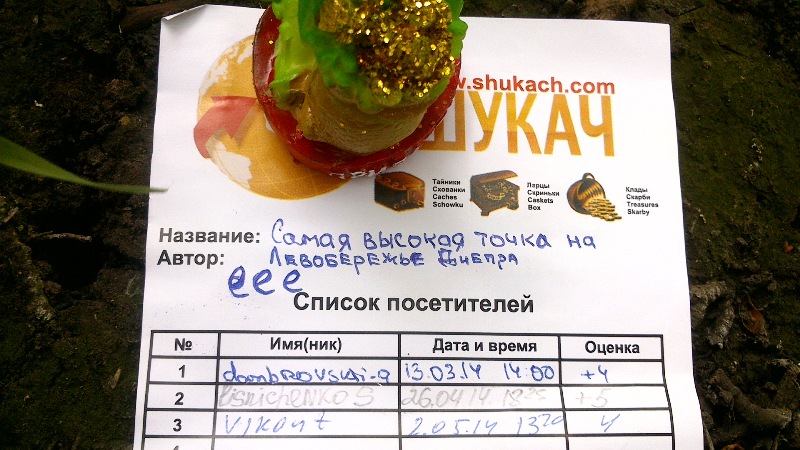 w.shukach.com
ШУКАЧ
Тайники
Схованки
Caches
Schowku
Ларцы
Скриньки
Caskets
Box
Клады
Скарби
Treasures
Skarby
Название: Самая высокая точка на
Левобережье Днепра
Автор: eee
Список посетителей
№ Имя(ник) Дата и время Оценка
1 dombrovski-a 13.03.14 14:00 +4
2 lisnichenkoS 26.04.14 +5
3 VIKont 2.05.14 13 20 4